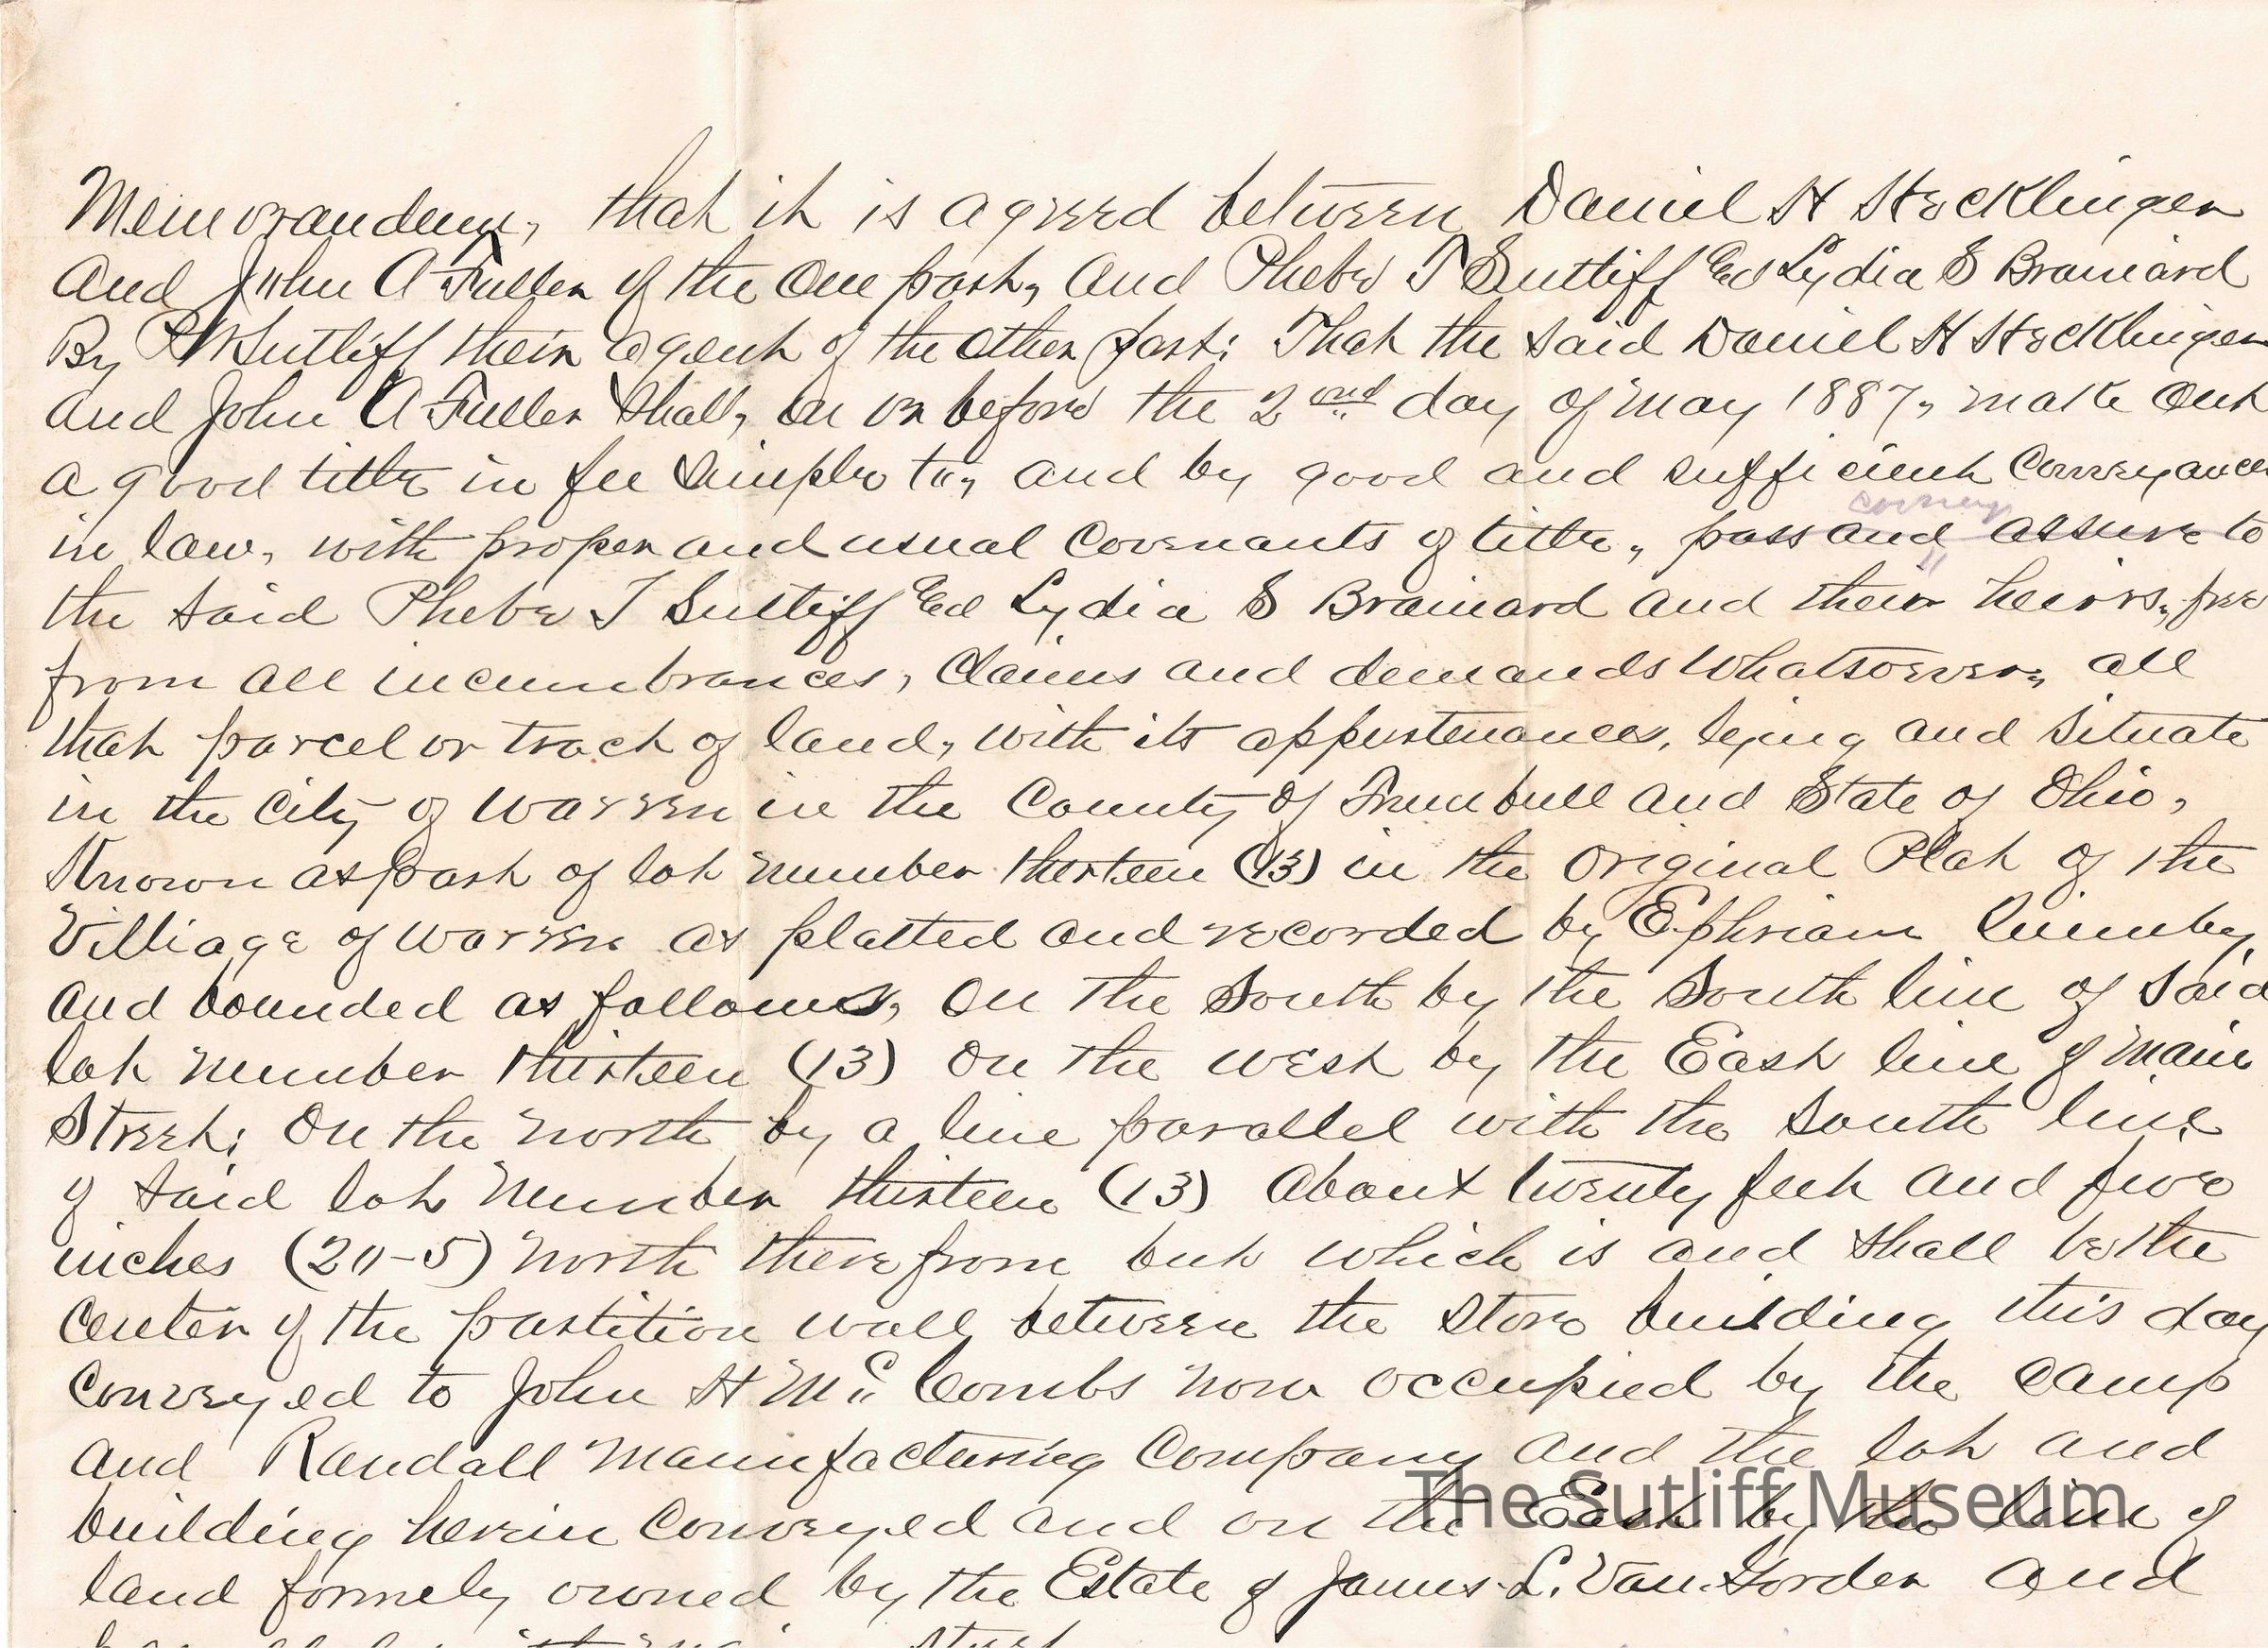 Memorandum, that it is agreed between Daniel H Stecklingen
And John A Fuller of the One part, and Phebe T Sutliff & Lydia S Brainard
By Sutliff their agent of the other part: That the said Daniel H Stecklingen
and John A Fuller Shall, on or before the 2nd day of May 1887, make out
a good title in fee simple to, and by good and sufficient Conveyance
convey
in law, with proper and usual Covenants of title, pass and assure to
the said Phebe T Sutliff & Lydia S Brainard and their heirs, free
from all incumbrances, claims and demands whatsoever, all
that parcel or track of land, with its appurtenances, lying and situate
in the City of Warren in the County of Trumbull and State of Ohio,
Known as part of lot number thirteen (13) in the Original Plat of the
Villiage of Warren as platted and recorded by Ephriam Quinby,
and bounded as follows, On the South by the South line of Said
lot number thirteen (13) On the west by the East line of Main
Street; On the north by a line parallel with the South line
of Said lot number thirteen (13) About twenty feet and five
inches (20-5) north therefrom but which is and shall be the
Center of the partition wall between the Store building this day
Conveyed to John H Mc Combs now occupied by the Camp
and Randall Manufacturing Company and the lot and
building herein Conveyed and on the East by the line of
land formely owned by the Estate of James L. Van Gorder and
The Sutliff Museum